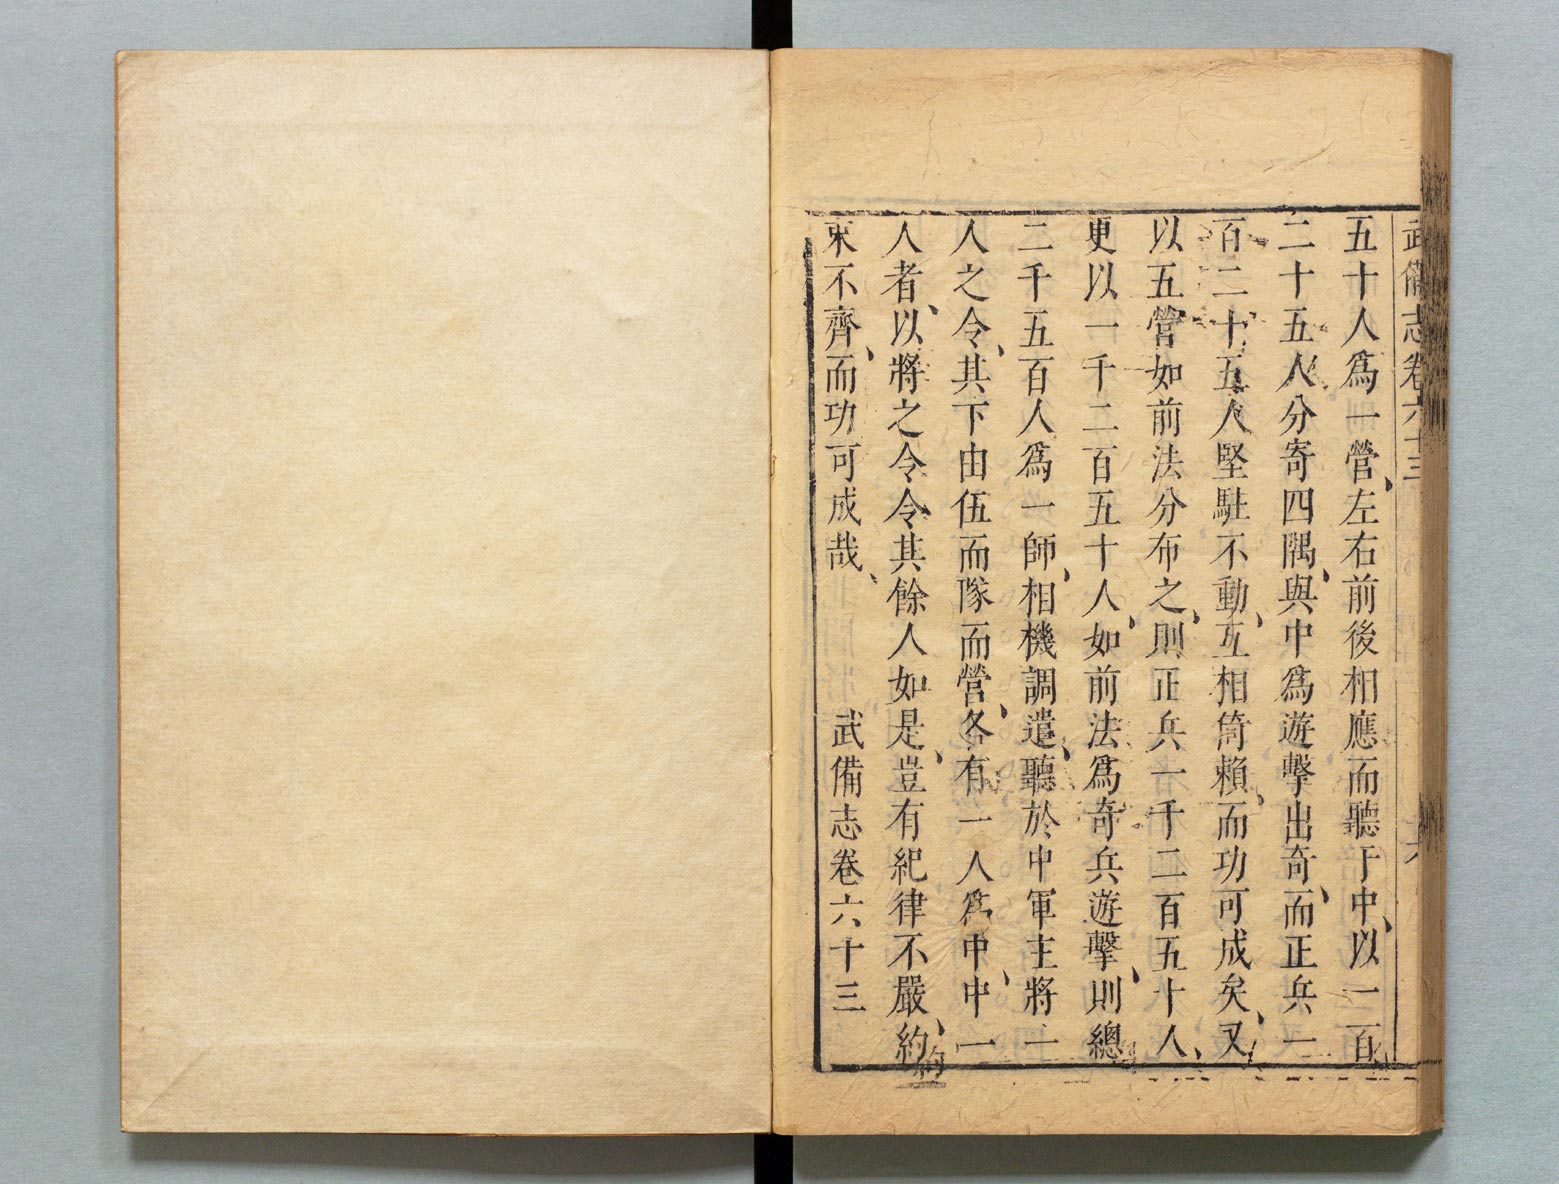 武備志卷六十三
六
五十人爲一營、左右前後相應而聽于中、以一百
二十五人分寄四隅、與中爲遊擊出奇、而正兵一
百二十五人堅駐不動、互相倚賴、而功可成矣、又
以五營如前法分布之、則正兵一千二百五十人、
更以一千二百五十人、如前法爲奇兵遊擊、則總
二千五百人爲一師、相機調遣、聽於中軍主將一
人之令、其下由伍而隊而營、各有一人爲中、中一
人者、以將之令令其餘人如是、豈有紀律不嚴、約
束不齊、而功可成哉、
武備志卷六十三